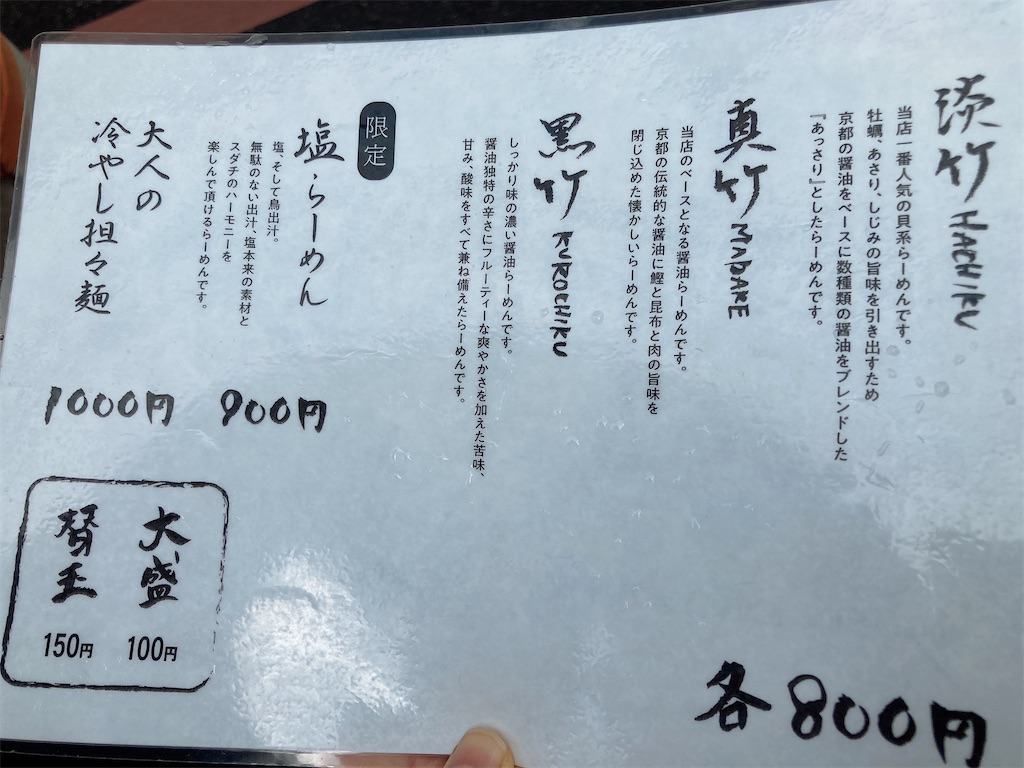 淡竹 HACHIKU
当店一番人気の貝系らーめんです。
牡蠣、あさり、しじみの旨味を引き出すため
京都の醤油をベースに数種類の醤油をブレンドした
『あっさり』としたらーめんです。
真竹 MADAKE
当店のベースとなる醤油らーめんです。
京都の伝統的な醤油に鰹と昆布と肉の旨味を
閉じ込めた懐かしいらーめんです。
黒竹 KUROCHIKU
しっかり味の濃い醤油らーめんです。
醤油独特の辛さにフルーティーな爽やかさを加えた苦味、
甘み、酸味をすべて兼ね備えたらーめんです。
各800円
限定
塩らーめん
塩、そして鳥出汁。
無駄のない出汁、塩本来の素材と
スダチのハーモニーを
楽しんで頂けるらーめんです。
900円
大人の
冷やし担々麺
1000円
大盛
100円
替玉
150円